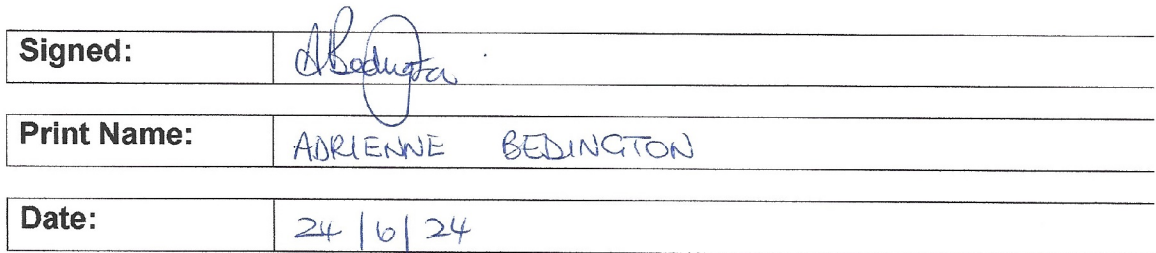 Signed: ABedington
Print Name: ADRIENNE BEDINGTON
Date: 24/6/24